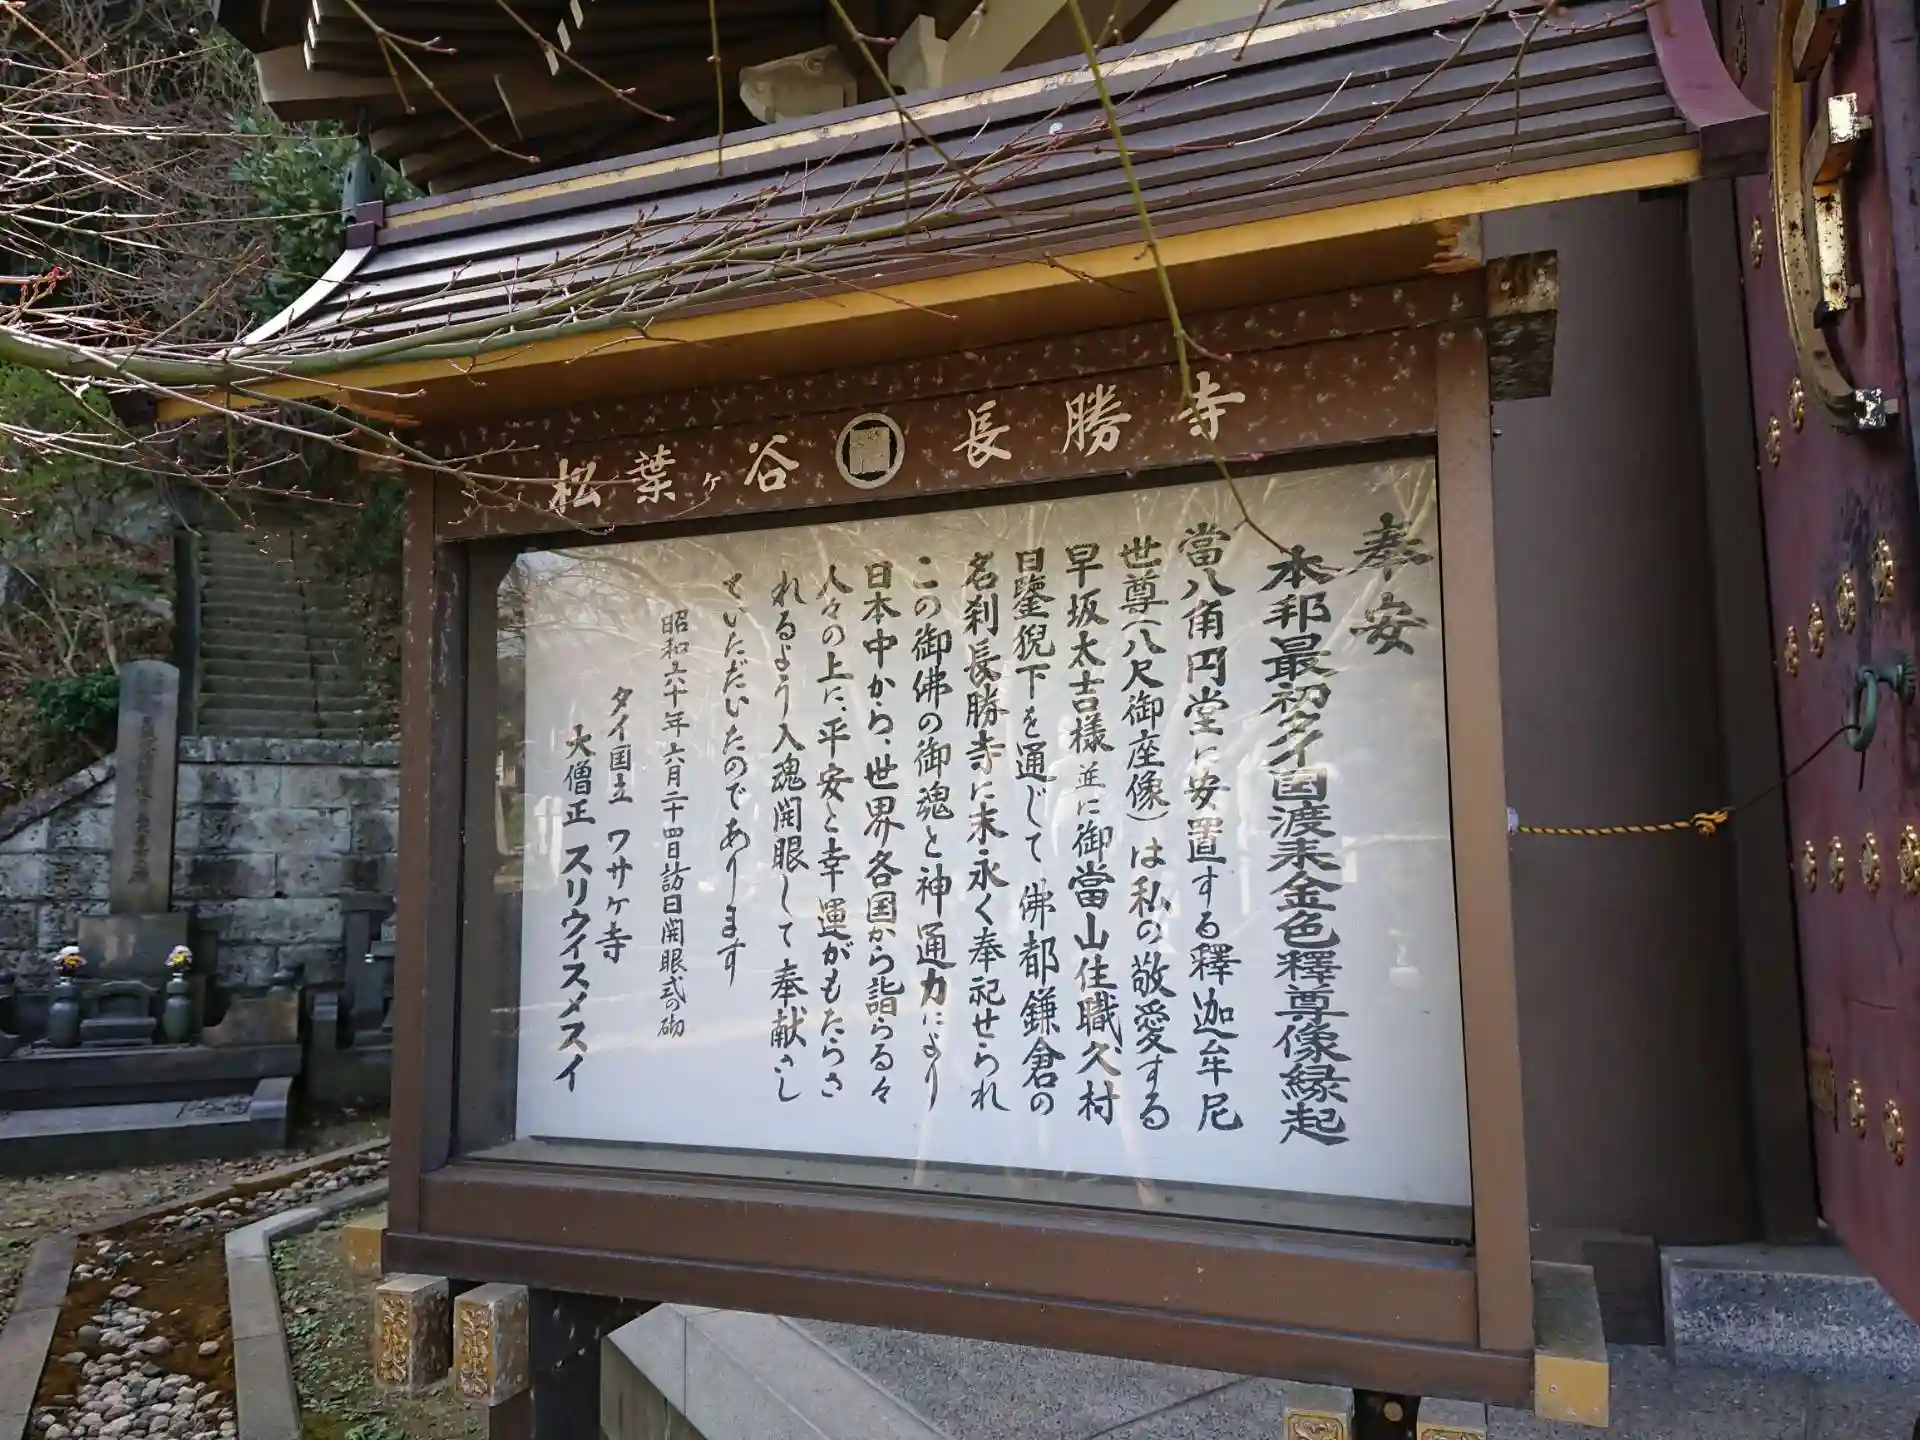 松葉ヶ谷 長勝寺
奉安
本邦最初タイ国渡来金色釋尊像縁起
當八角円堂に安置する釋迦牟尼
世尊(八尺御座像)は私の敬愛する
早坂太吉様並に御當山住職久村
日鑒猊下を通じて、佛都鎌倉の
名刹長勝寺に末永く奉祀せられ
この御佛の御魂と神通力により
日本中から、世界各国から詣らる々
人々の上に、平安と幸運がもたらさ
れるよう入魂開眼して奉献さし
ていただいたのであります
昭和六十年六月二十四日訪日開眼式の砌
タイ国立 ワサケ寺
大僧正 スリウイスメスイ